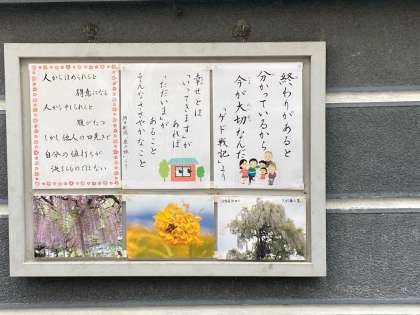 終わりがあると
分かっているから
今が大切なんだ
「ゲド戦記」より
幸せとは
「いってきます」が
あれば
「ただいま」が
あること
そんなささやかなこと
人からほめられると
得意になる
人から
腹がたつ
しかし他人の口先で
自分の値打ちが
決まるものではない